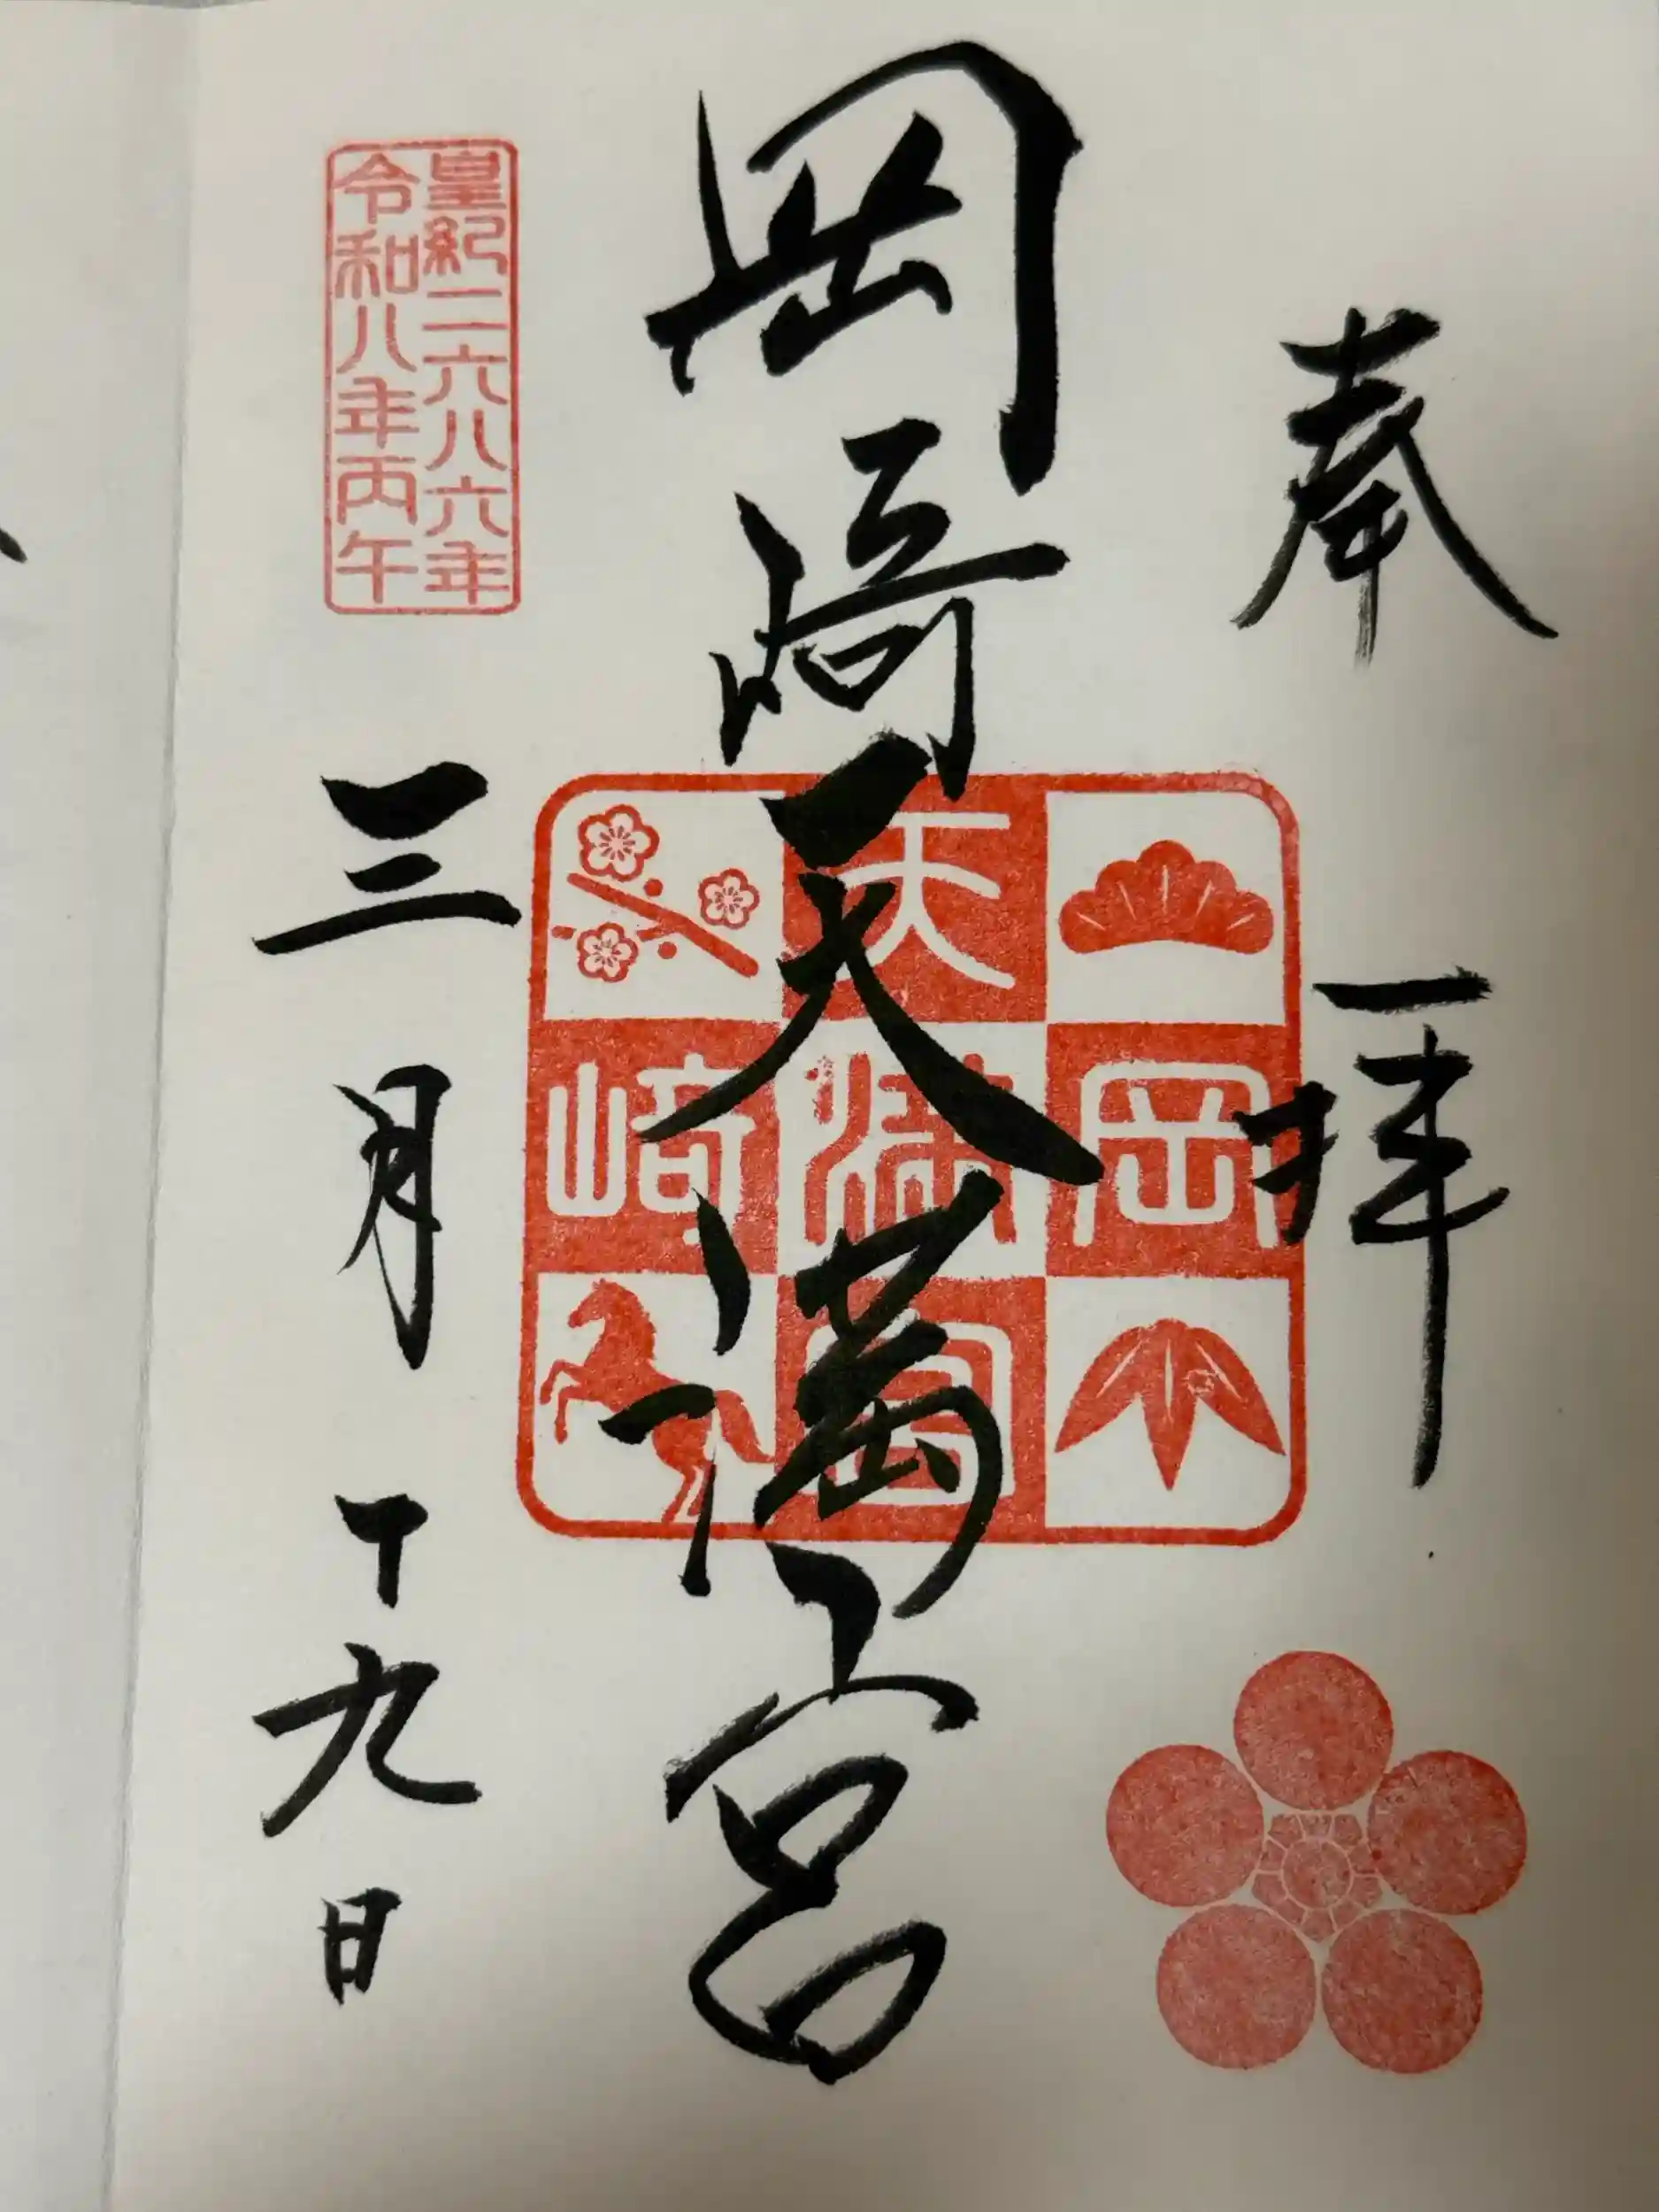 奉拝
岡崎天満宮
岡崎
天満宮
皇紀二六八六年
令和八年丙午
三月十九日